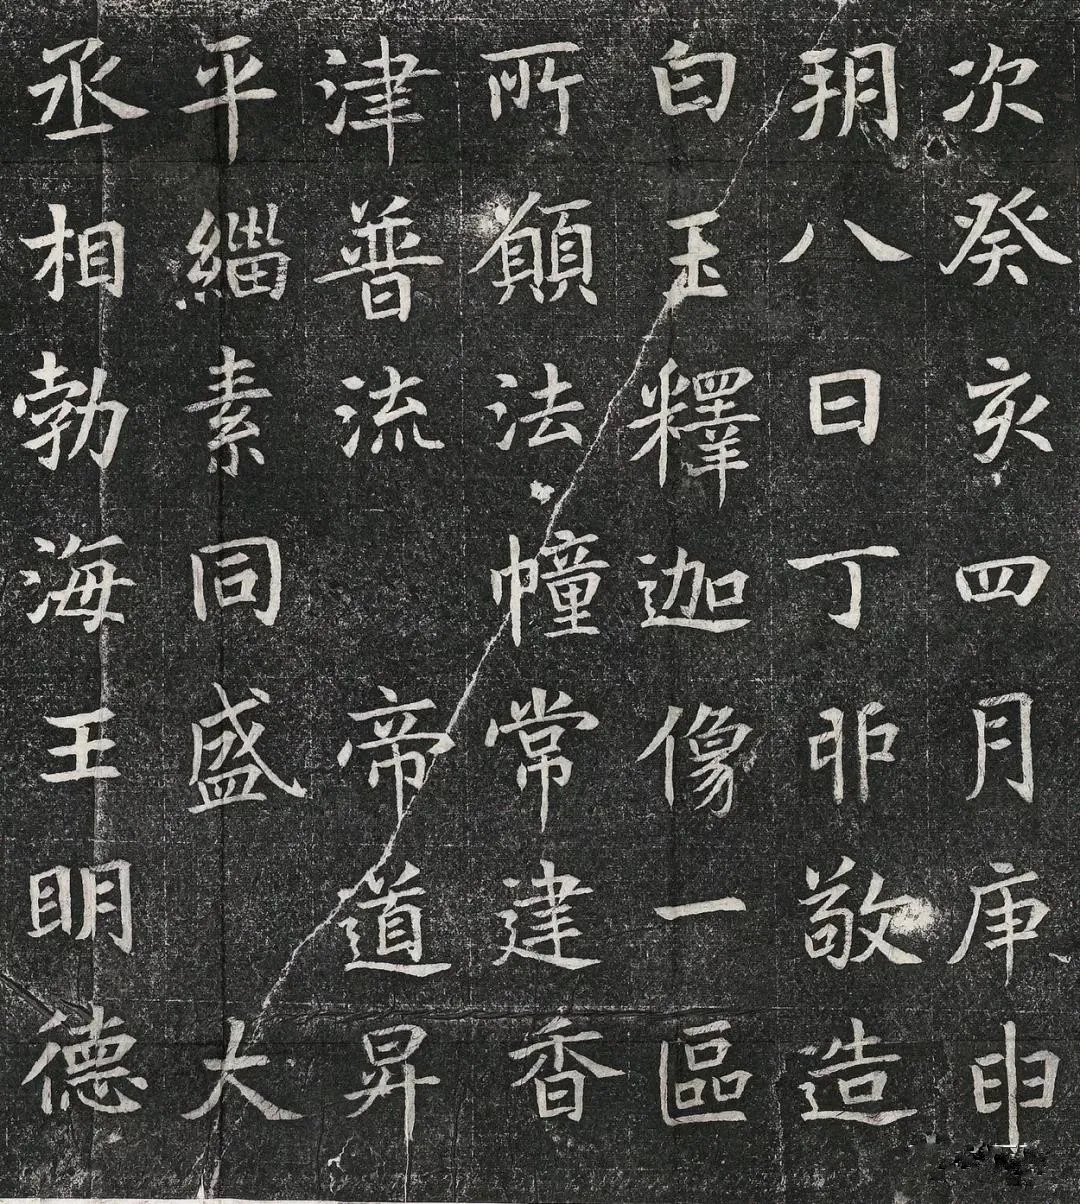 次癸亥四月庚申
朔八日丁卯敬造
白玉釋迦像一區
所願法幢常建香
津普流　帝道昇
平緇素同盛　大
丞相勃海王明德